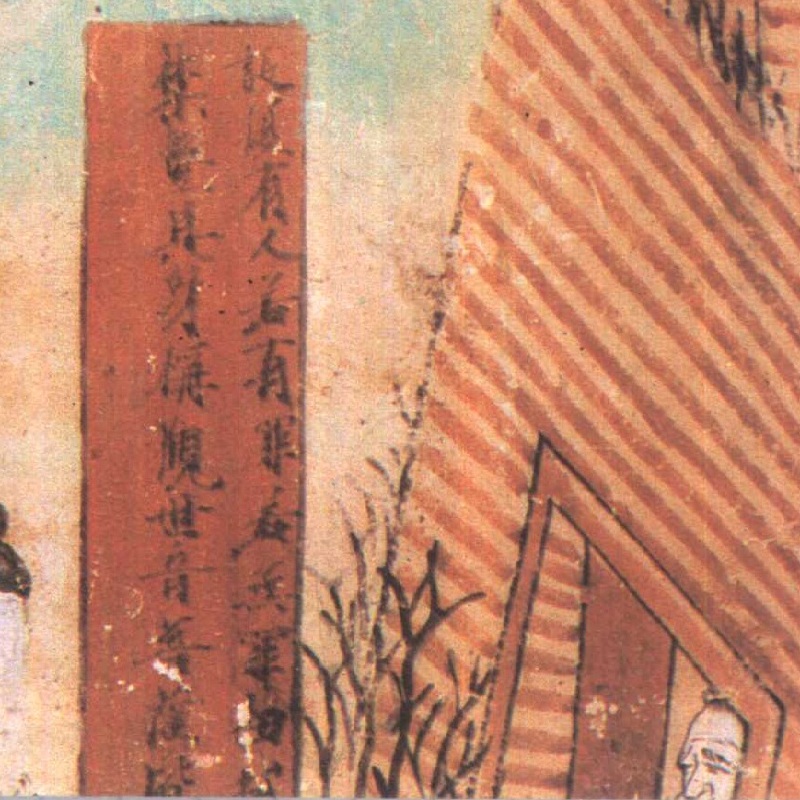 設復有人若有罪若無罪杻械
枷鎖檢繫其身稱觀世音菩薩